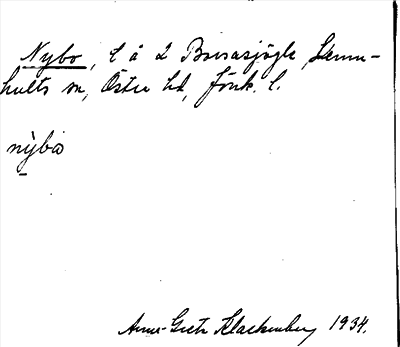 Nybo, l å 2 Boarasjögle, Lemn-
hults sn, Östra hd, Jönk. l.
nybo
Anna-Greta Klackenberg 1934.